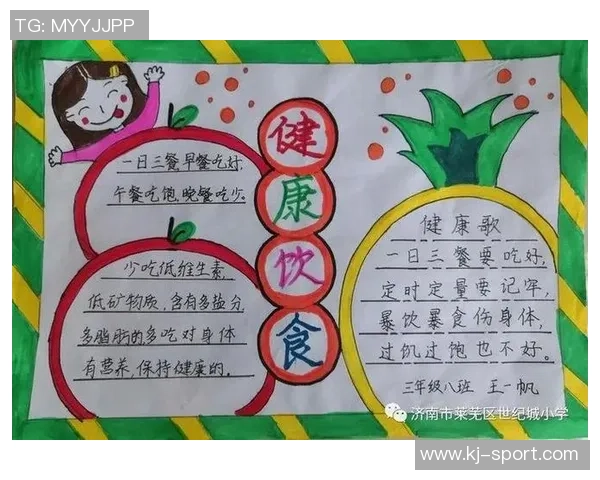 TG: MYYJJPP
健康饮食
一日三餐,早餐吃好,
午餐吃饱,晚餐吃少。
少吃低维生素,
低矿物质,含有多盐分
多脂肪的多吃对身体
有营养,保持健康的。
健康歌
一日三餐要吃好,
定时定量要记牢,
暴饮暴食伤身体,
过饥过饱也不好。
三年级八班 王一帆
济南市莱芜区世纪城小学
www.kj-sport.com